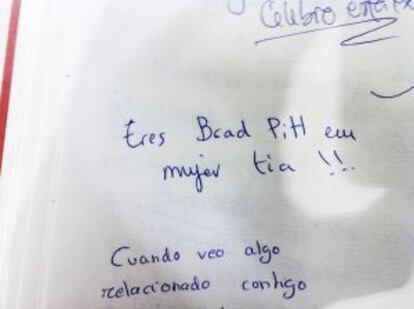 Celebro
Eres Brad Pitt en
mujer tia !!.
Cuando veo algo
relacionado contigo